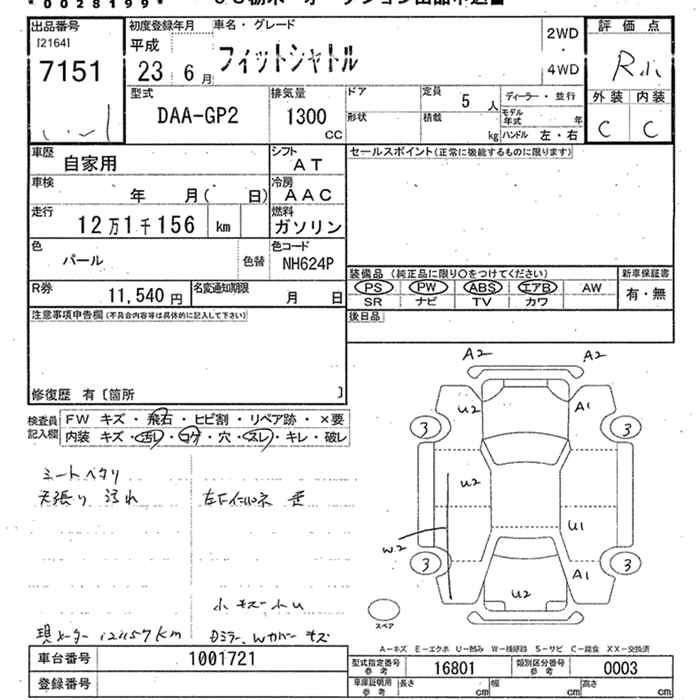 *0028199*
出品番号
[2164]
7151
初度登録年月
平成
23 6月
車名・グレード
フィットシャトル
2WD
・
4WD
評価点
R
外装 内装
C C
型式
DAA-GP2
排気量
1300
CC
ドア
形状
定員
5人
積載
kg
ディーラー・並行
モデル年式 年
ハンドル 左・右
車歴
自家用
シフト
AT
セールスポイント(正常に機能するものに限ります)
車検
年 月( 日)
冷房
AAC
走行
12万1千156 km
燃料
ガソリン
色
パール
色替
色コード
NH624P
装備品(純正品に限り○をつけてください)
新車保証書
PS PW ABS エアB AW
有・無
SR ナビ TV カワ
R券
11,540円
名変通知期限
月 日
後日品
注意事項申告欄(不具合内容等は具体的に記入して下さい)
修復歴 有〔箇所 〕
検査員記入欄
FW キズ・飛石・ヒビ割・リペア跡・×要
内装 キズ・汚レ・コゲ・穴・スレ・キレ・破レ
シートヘタリ
天張り 汚れ
小キズ
現メーター 121157km
A2 A2
U2 A1
3 3
U2
U1
W2
3 A1 3
U2
スペア
A-キズ E-エクボ U-凹み W-補修跡 S-サビ C-腐食 XX-交換済
車台番号
1001721
型式指定番号
参考
16801
類別区分番号
参考
0003
登録番号
車庫証明用
参考
長さ cm 幅 cm 高さ cm